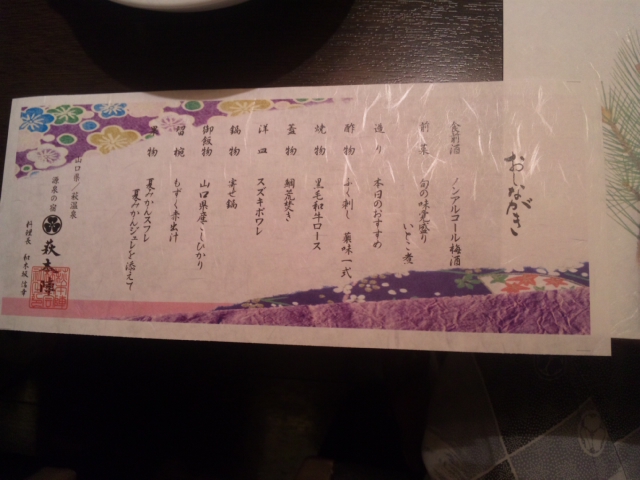 おしながき
食前酒　ノンアルコール梅酒
前菜　旬の味覚盛り
いとこ煮
造り　本日のおすすめ
酢物　ふく刺し　薬味一式
焼物　黒毛和牛ロース
蓋物　鯛荒焚き
洋皿　スズキポワレ
鍋物　寄せ鍋
御飯物　山口県産こしひかり
留椀　もずく赤出汁
果物　夏みかんスフレ
夏みかんジュレを添えて
山口県／萩温泉
源泉の宿　萩本陣
料理長